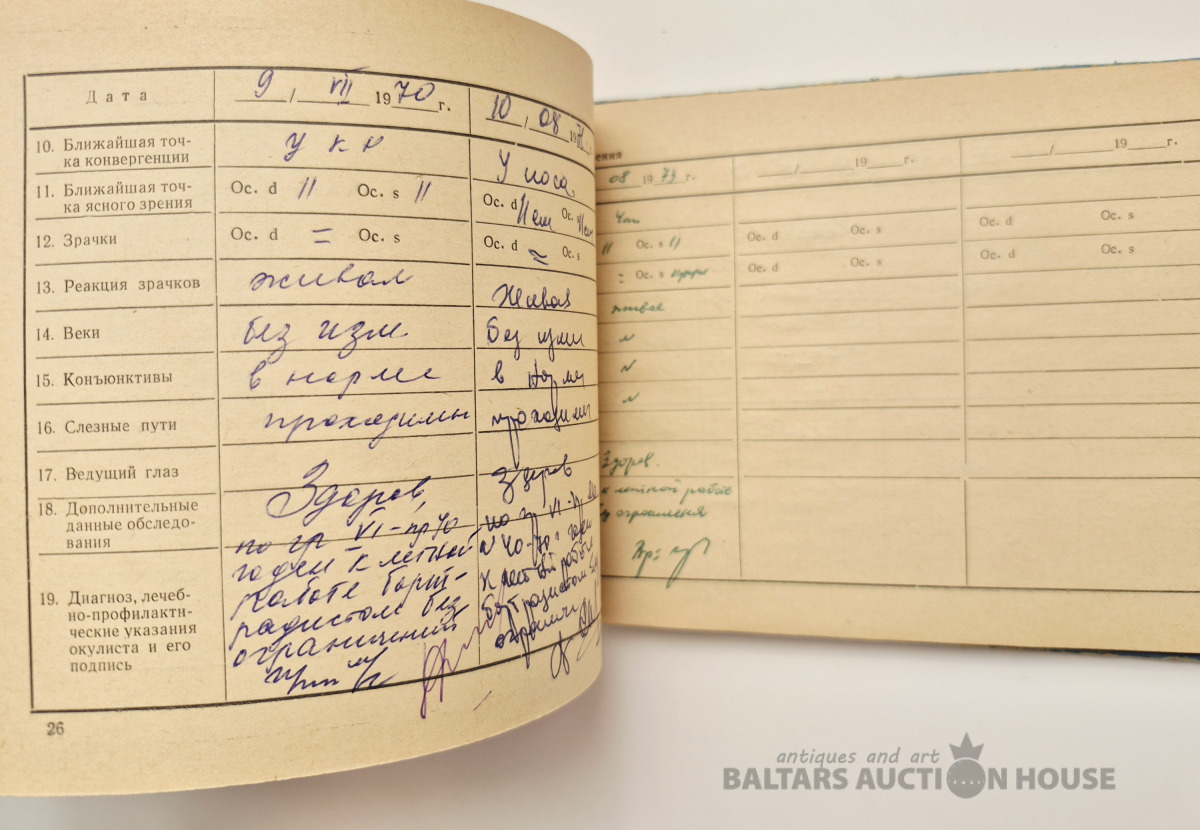 Дата
9 / VII 1970 г.
10, 08 19
10. Ближайшая точ-
ка конвергенции
у к н
У носа
11. Ближайшая точ-
ка ясного зрения
Ос. d 11 Ос. s 11
Ос. d 11см Ос. s 11см
12. Зрачки
Ос. d = Ос. s
Ос. d ≈ Ос. s
13. Реакция зрачков
живая
Живая
14. Веки
без изм
без изм
15. Конъюнктивы
в норме
в норме
16. Слезные пути
проходимы
проходимы
17. Ведущий глаз
18. Дополнительные
данные обследо-
вания
Здоров,
Здоров
19. Диагноз, лечеб-
но-профилакти-
ческие указания
окулиста и его
подпись
по гр VI-пр 40
годен к летной
работе борт-
радистом без
ограничений
по гр VI-
годен
к летной работе
бортрадистом без
огранич
26
ения
08 1973 г.
/ 19 г.
/ 19 г.
11 Ос. s 11
Ос. d Ос. s
Ос. d Ос. s
= Ос. s
Ос. d Ос. s
Ос. d Ос. s
живая
N
N
N
Здоров.
к летной работе
без ограничения
antiques and art
BALTARS AUCTION HOUSE